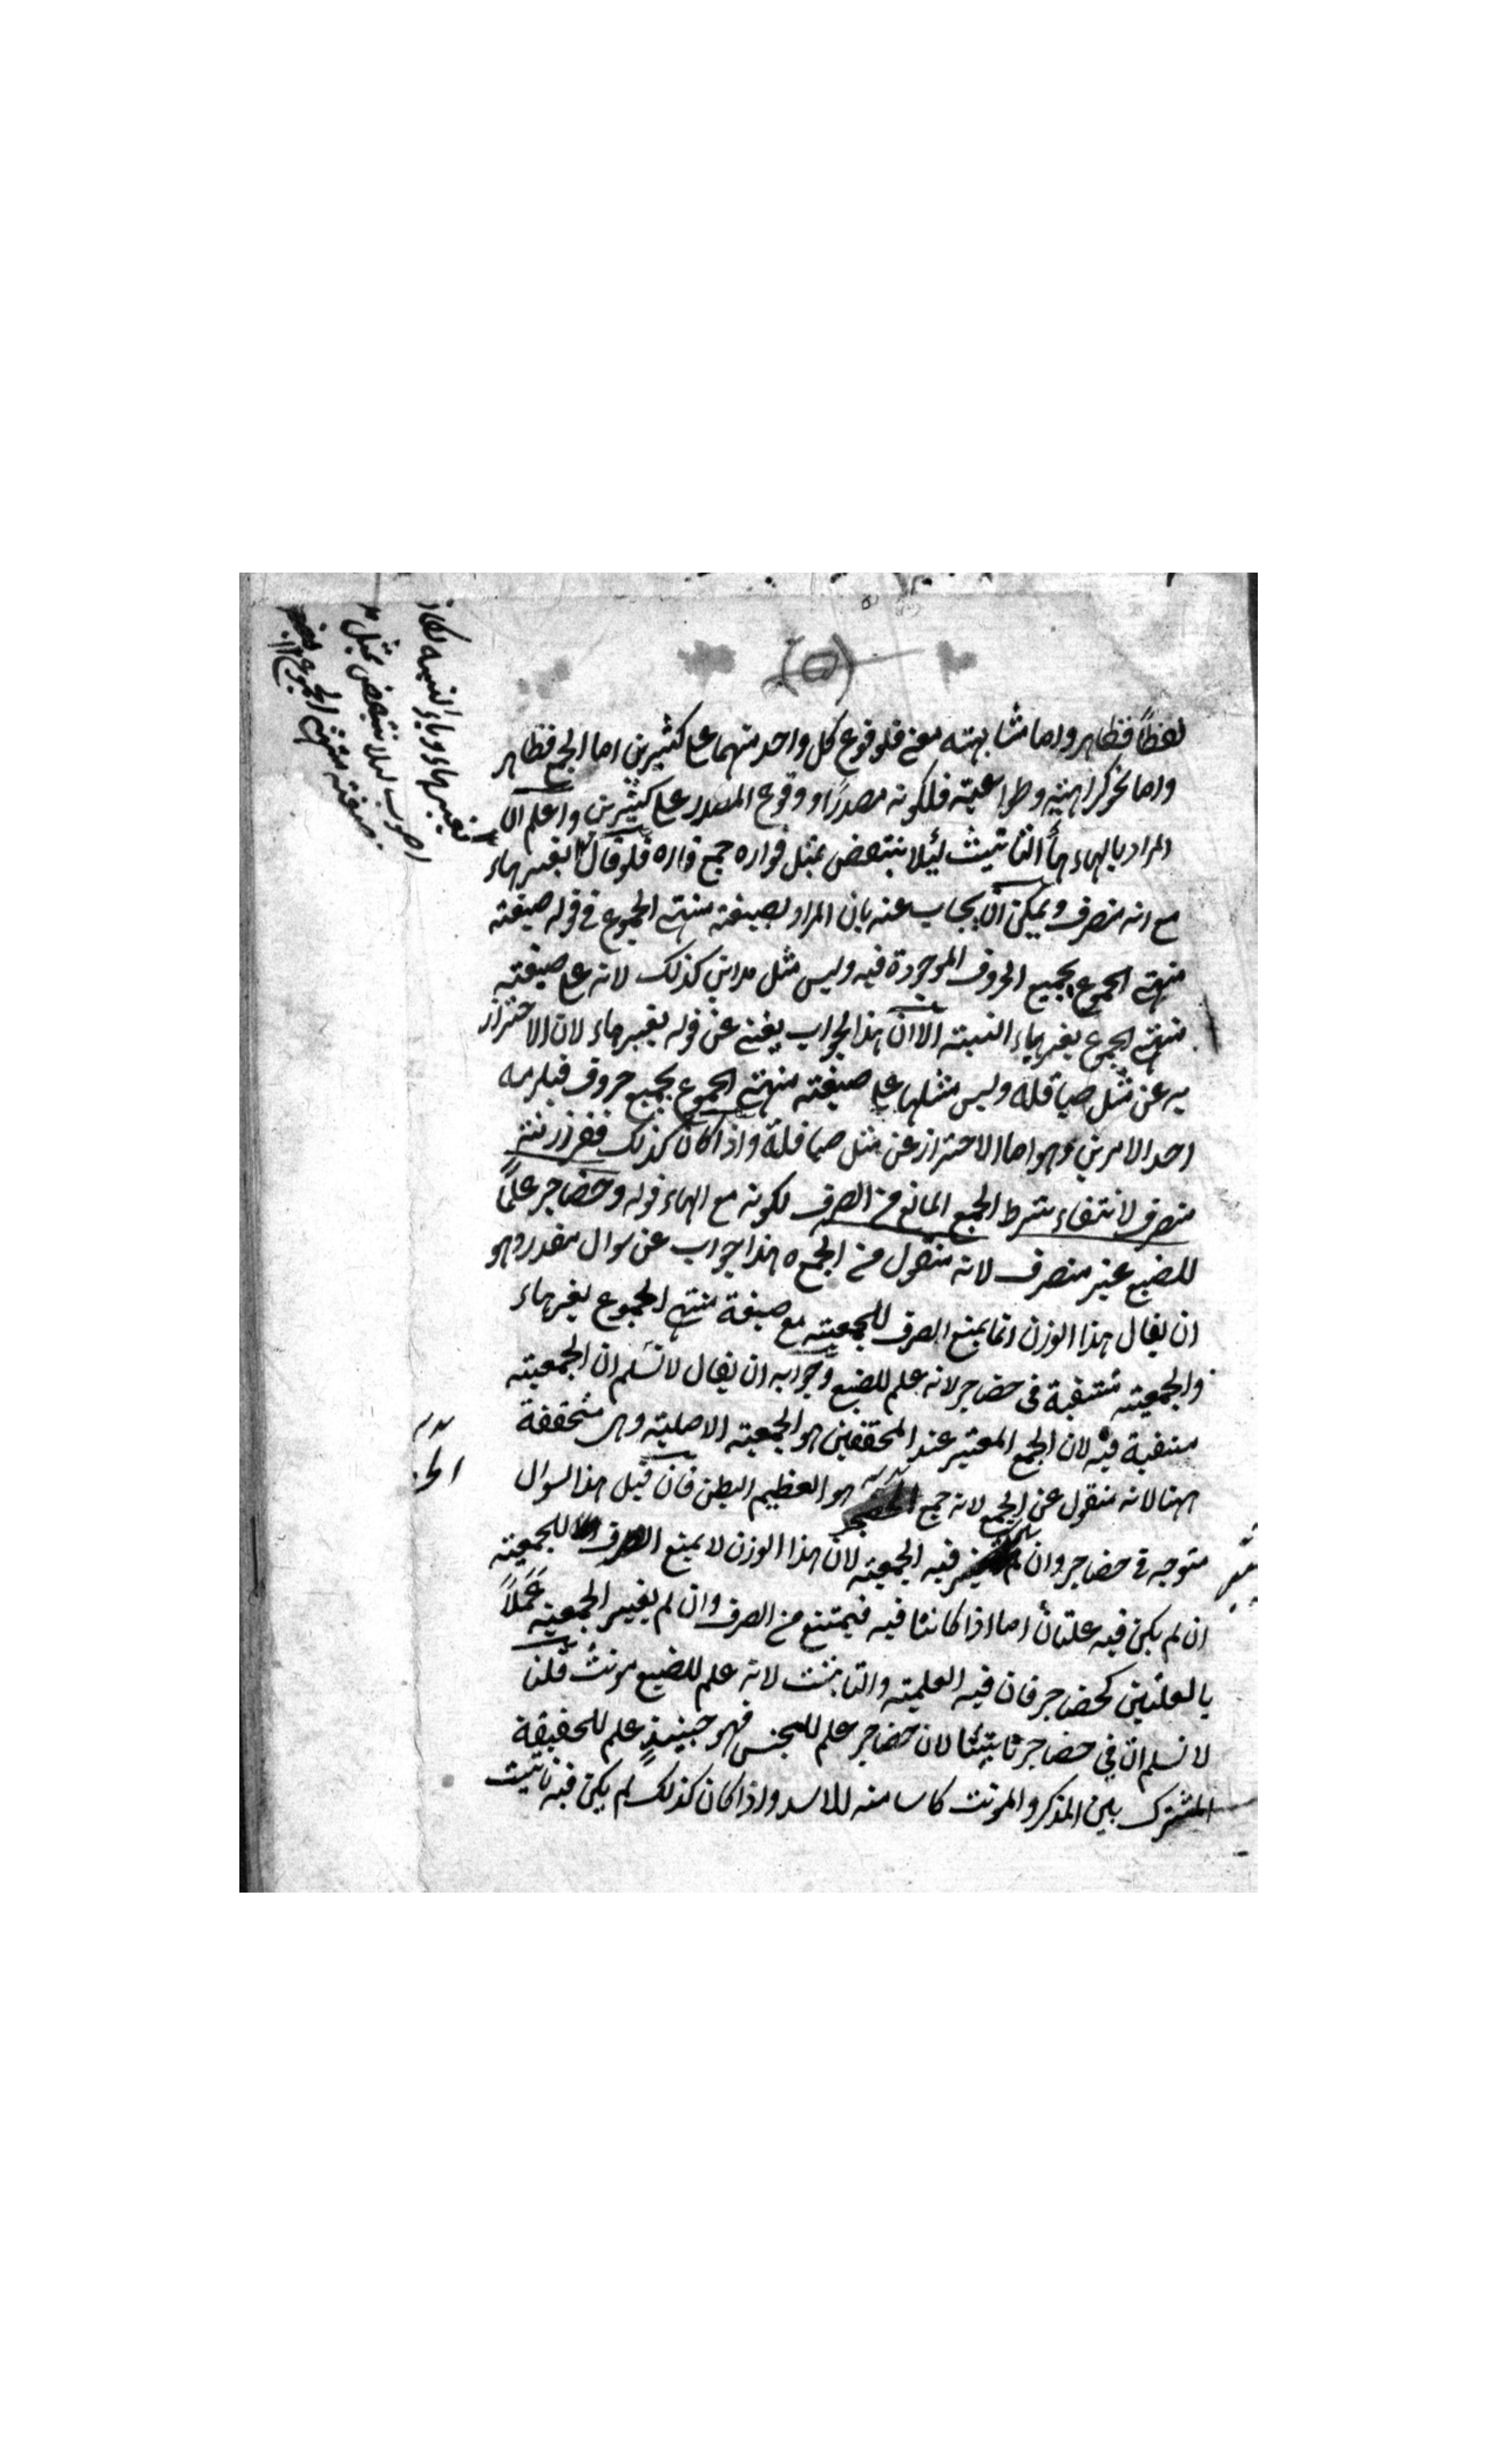 لفظاً فظاهر واما مشابهته معنى فلوقوع كل واحد منهما على كثيرين اما الجمع فظاهر
واما نحو كراهية وطواعية فلكونه مصدرا ووقوع المصدر على كثيرين واعلم ان
المراد بالهاء هاء التانيث لئلا ينتقض بمثل فواره جمع فاره فلو قال بغير هاء
مع انه منصرف ويمكن ان يجاب عنه بان المراد بصيغته منتهى الجموع في قوله صيغته
منتهى الجموع بجميع الحروف الموجودة فيه وليس مثل مداىنى كذلك لانه على صيغته
منتهى الجموع بغير ياء النسبته الا ان هذا الجواب يغنى عن قوله بغير هاء لان الاحتراز
به عن مثل صياقلة وليس مثلها على صيغته منتهى الجموع بجميع حروف فيلزمه
احد الامرين وهو اما الاحتراز عن مثل صياقلة واذا كان كذلك ففرازنته
منصرف لانتفاء شرط الجمع المانع من الصرف لكونه مع الهاء قوله وحضاجر علماً
للضبع غير منصرف لانه منقول من الجمع ه هذا جواب عن سوال مقدر وهو
ان يقال هذا الوزن انما يمنع الصرف للجمعيته مع صيغة منتهى الجموع بغير هاء
والجمعيته منتفية فى حضاجر لانه علم للضبع وجوابه ان يقال لا نسلم ان الجمعيته
منتفية فيه لان الجمع المعتبر عند المحققين هو الجمعيته الاصليته وهى متحققة
ههنا لانه منقول عن الجمع لانه جمع هو العظيم البطن فان قيل هذا السوال
متوجه فى حضاجر وان لم فيه الجمعيته لان هذا الوزن لا يمنع الصرف للجمعيته
ان لم يكن فيه علتان اما اذا كانتا فيه فيمتنع من الصرف وان لم يغير الجمعيته عملاً
بالعلتين كحضاجر فان فيه العلميته والتانيث لانه علم للضبع مونث قلنا
لا نسلم ان في حضاجر تانيثا لان حضاجر علم للجنس فهو حينئذٍ علم للحقيقة
المشترك بين المذكر والمونث كاسامته للاسد واذا كان كذلك لم يكن فيه تانيث
بغير هاء وياء النسبه لكان
اصوب ليلا ينتقض بمثل
صيغته منتهى الجموع